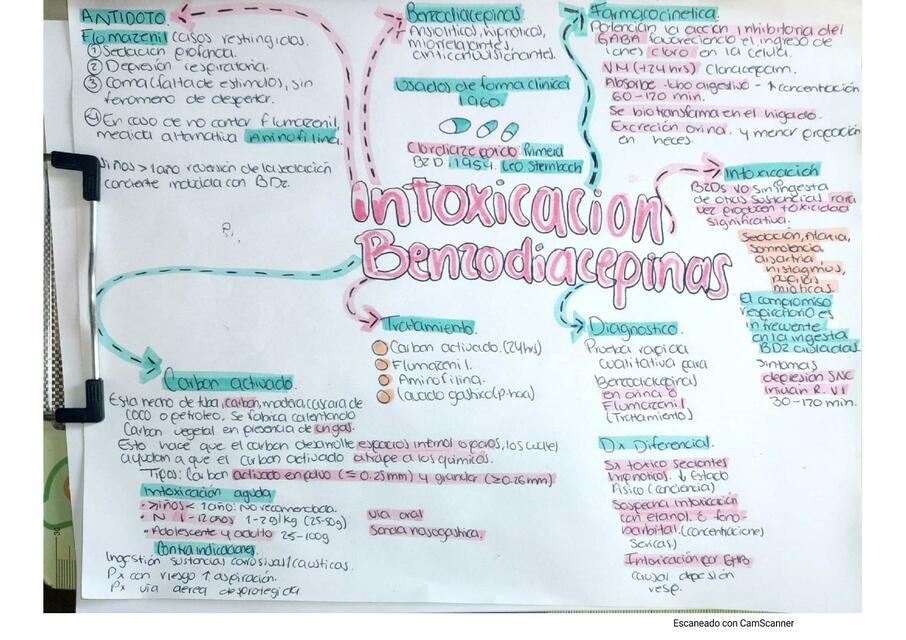 ANTIDOTO
Flomazenil casos restringidos.
① Sedacion profunda.
② Depresion respiratoria.
③ Coma (falta de estimulo), sin
fenomeno de despertar.
④ En caso de no contar flumazenil,
medida alternativa Aminofilina.
Niños > 1año reversión de la sedación
conciente inducida con BDZ.
Benzodiacepinas
Ansioliticos, hipnoticos,
miorrelajantes,
anticonvulsionantes.
Usados de forma clinica
1960.
Clordiazepoxido: Primera
BZD 1954. Leo Sternbach
Farmacocinetica.
Potencian la accion inhibitoria del
GABA favoreciendo el ingreso de
iones cloro en la celula.
VM (+24hrs) Clonacepam.
Absorbe tubo digestivo - ↑ concentración
60-120 min.
Se biotransforma en el higado.
Excreción orina. y menor proporción
en heces.
Intoxicacion Benzodiacepinas
Intoxicación
BZDs vo sin ingesta
de otras sustancias rara
vez producen toxicidad
significativa.
Sedación, Ataxia,
somnolencia,
disartria
nistagmos,
pupilas
mioticas
El compromiso
respiratorio es
infrecuente
en la ingesta
BDZ aisladas
Sintomas
depresión SNC
inician R. VI
30-120 min.
Tratamiento.
Carbon activado. (24hrs)
Flumazenil.
Aminofilina.
Lavado gastrico (P.hora)
Diagnostico.
Prueba rapida
cualitativa para
Benzodiacepinas
en orina o
Flumazenil
(Tratamiento)
Dx Diferencial.
Sx toxico
hipnoticos. ↓ Estado
(conciencia)
Sospecha intoxicación
con etanol. o feno
barbital. (concentraciones
sericas)
Intoxicacion por GHB
causal depresión
resp.
Carbon activado.
Esta hecho de turba, carbón, madera, cascara de
coco o petroleo. Se fabrica calentando
Carbon vegetal en presencia de un gas.
Esto hace que el carbon desarrolle espacios internos o poros, los cuales
ayudan a que el carbon activado atrape a los quimicos.
Tipos: Carbon activado en polvo (≤ 0.25mm) y granular (≥0.26mm)
Intoxicación aguda
niños < 1año: No recomendada.
N 1-12años 1-2g/kg (25-50g) via oral
Adolescente y adulto 25-100g Sonda nasogastrica.
Contra indicaciones
Ingestión sustancias corrosivas/causticas.
Px con riesgo ↑ aspiración.
Px via aerea desprotegida
Escaneado con CamScanner